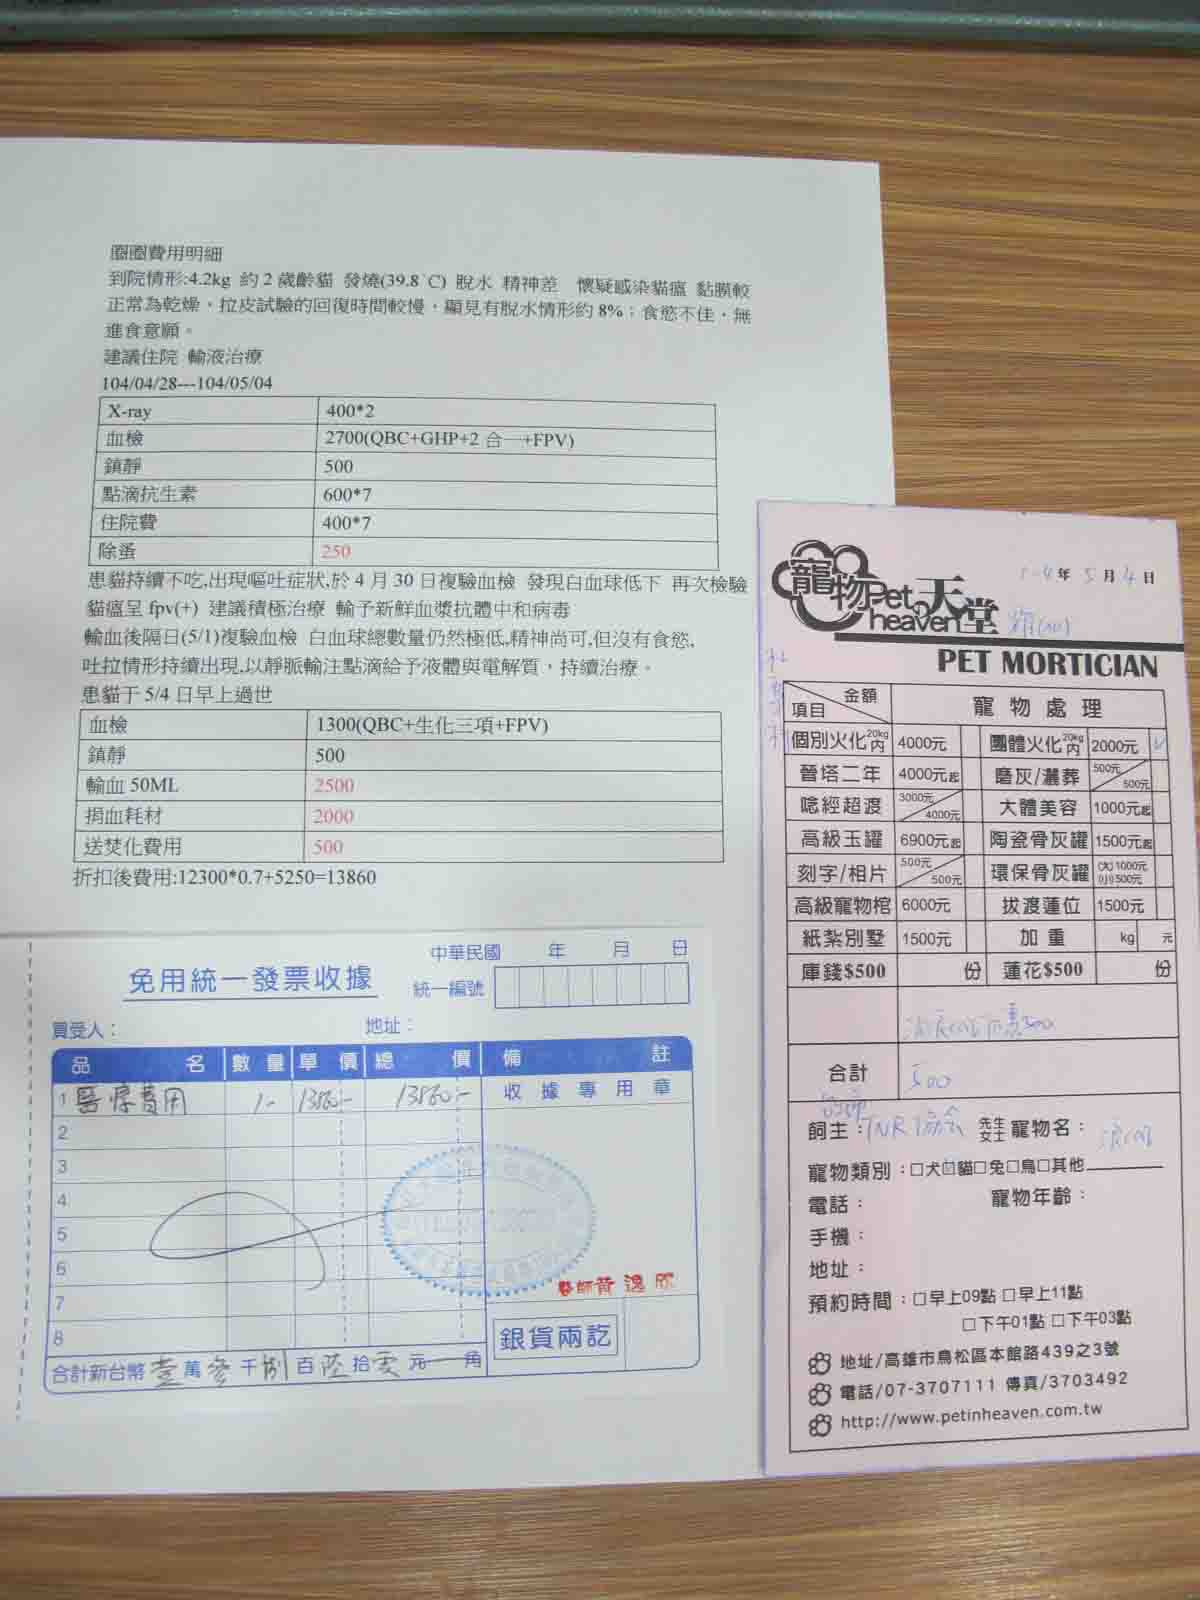 圈圈費用明細
到院情形:4.2kg 約 2 歲齡貓 發燒(39.8`C) 脫水 精神差 懷疑感染貓瘟 黏膜較
正常為乾燥，拉皮試驗的回復時間較慢，顯見有脫水情形約 8%；食慾不佳，無
進食意願。
建議住院 輸液治療
104/04/28---104/05/04
X-ray 400*2
血檢 2700(QBC+GHP+2 合一+FPV)
鎮靜 500
點滴抗生素 600*7
住院費 400*7
除蚤 250
患貓持續不吃,出現嘔吐症狀,於 4 月 30 日複驗血檢 發現白血球低下 再次檢驗
貓瘟呈 fpv(+) 建議積極治療 輸予新鮮血漿抗體中和病毒
輸血後隔日(5/1)複驗血檢 白血球總數量仍然極低,精神尚可,但沒有食慾,
吐拉情形持續出現,以靜脈輸注點滴給予液體與電解質，持續治療。
患貓于 5/4 日早上過世
血檢 1300(QBC+生化三項+FPV)
鎮靜 500
輸血 50ML 2500
捐血耗材 2000
送焚化費用 500
折扣後費用:12300*0.7+5250=13860
中華民國 年 月 日
免用統一發票收據
統一編號
買受人： 地址：
品名 數量 單價 總價 備註
1 醫療費用 1- 13860- 13860- 收據專用章
2
3
4
5
6
7
8
醫師黃逸欣
銀貨兩訖
合計新台幣 壹 萬 參 千 捌 百 陸 拾 零 元 角
寵物天堂
Pet heaven
104年 5月 4日
PET MORTICIAN
金額 項目 寵物處理
個別火化20kg內 4000元 團體火化20kg內 2000元 ✓
晉塔二年 4000元起 磨灰/灑葬 500元 500元
唸經超渡 3000元 4000元 大體美容 1000元起
高級玉罐 6900元起 陶瓷骨灰罐 1500元起
刻字/相片 500元 500元 環保骨灰罐 (大)1000元 (小)500元
高級寵物棺 6000元 拔渡蓮位 1500元
紙紮別墅 1500元 加重 kg 元
庫錢$500 份 蓮花$500 份
500
合計 500
飼主：TNR協会 先生 女士 寵物名：
寵物類別：□犬☑貓□兔□鳥□其他
電話： 寵物年齡：
手機：
地址：
預約時間：□早上09點 □早上11點
□下午01點 □下午03點
地址/高雄市鳥松區本館路439之3號
電話/07-3707111 傳真/3703492
http://www.petinheaven.com.tw